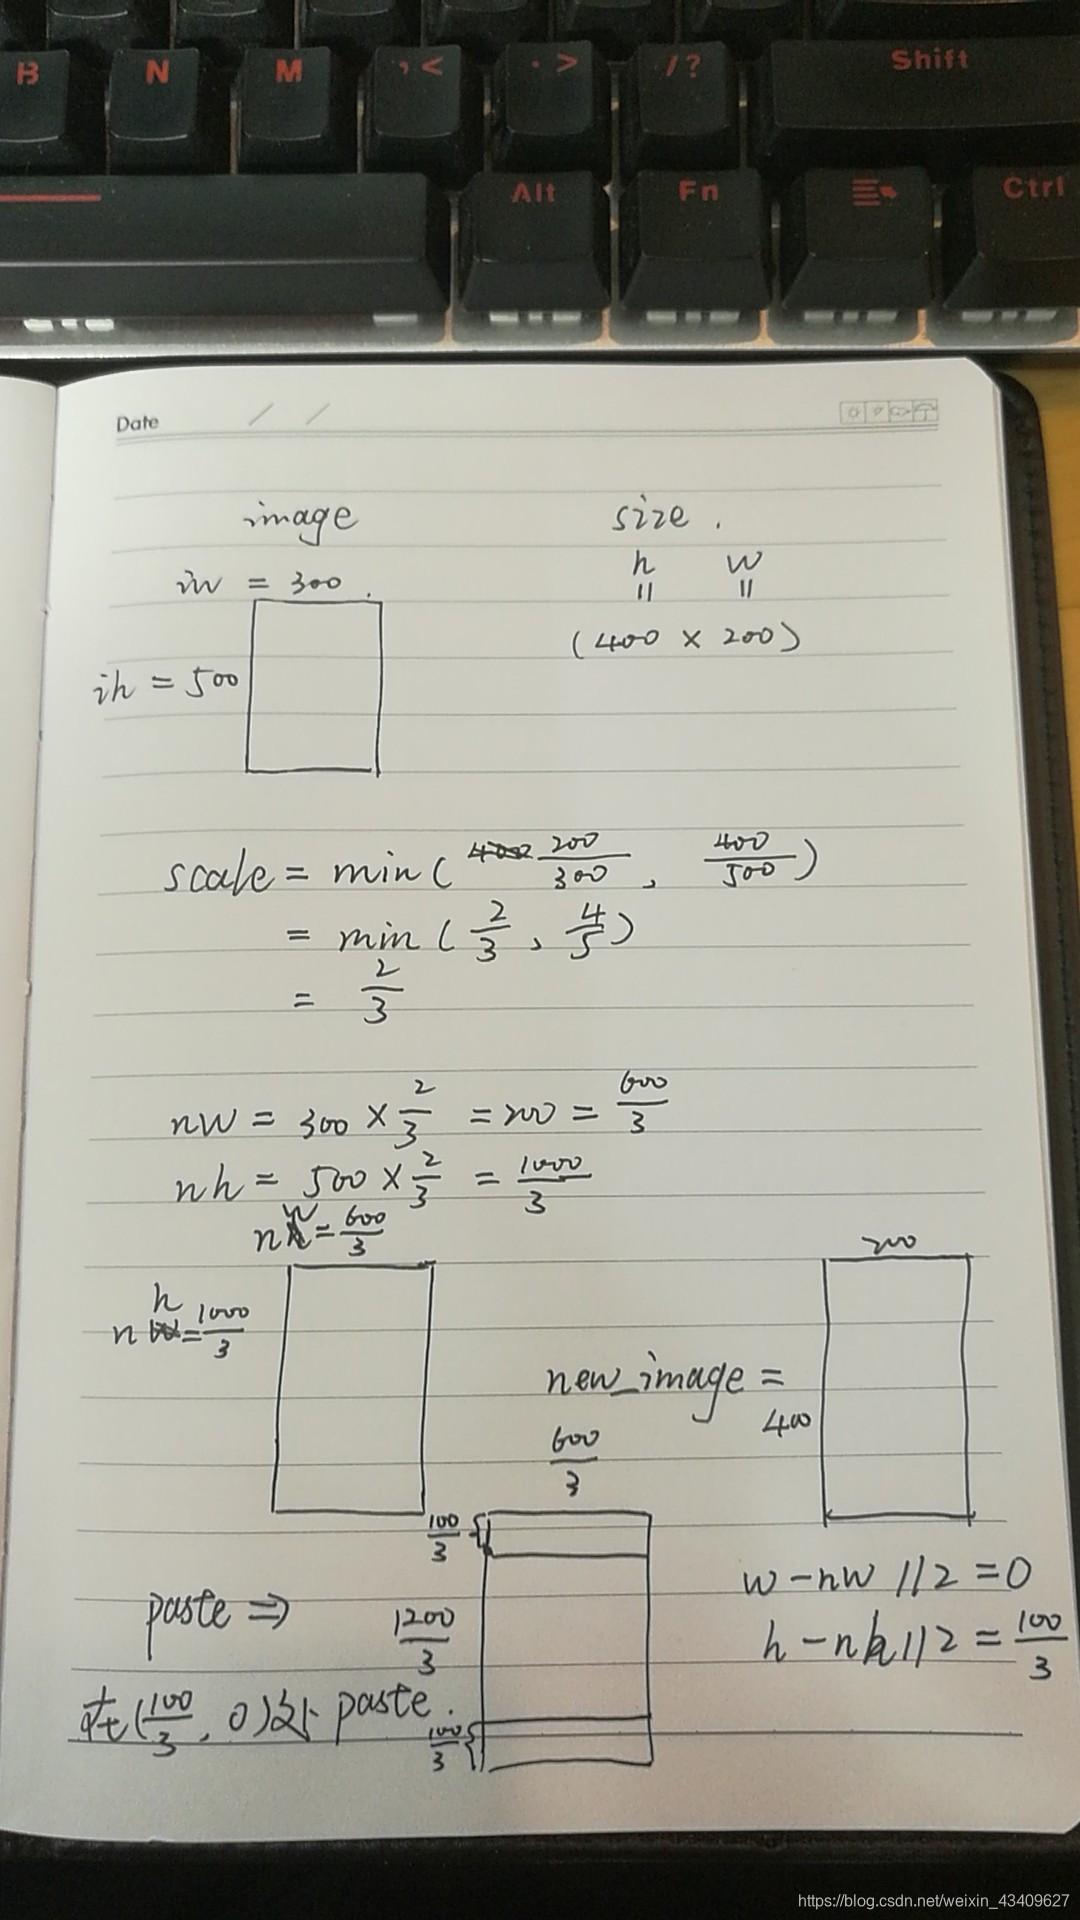 B N M , < . > / ? Shift
Alt Fn Ctrl
Date / /
image size .
h w
iw = 300 . || ||
(400 × 200)
ih = 500
scale = min( 200/300 , 400/500 )
= min( 2/3 , 4/5 )
= 2/3
nw = 300 × 2/3 = 200 = 600/3
nh = 500 × 2/3 = 1000/3
nw = 600/3
200
nh = 1000/3
new_image =
400
600/3
100/3
w - nw // 2 = 0
paste ⇒ 1200/3
h - nh // 2 = 100/3
在(100/3, 0)处 paste .
100/3
https://blog.csdn.net/weixin_43409627